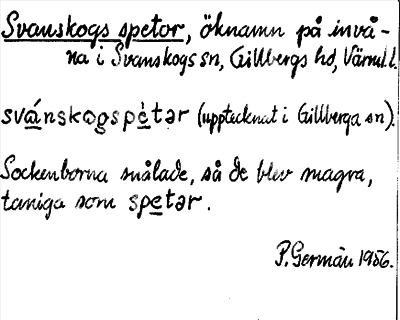 Svanskogs spetor, öknamn på invå-
na i Svanskogs sn, Gillbergs hd, Värml.l.
svánskogspètər (upptecknat i Gillberga sn).
Sockenborna snålade, så de blev magra,
taniga som spetər.
P. Germän 1956.